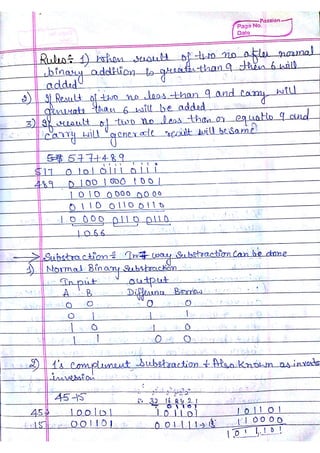 Passion
Page No.
Date
Rules:- 1) When result of two no after normal
binary addition is greater than 9 then 6 will
added
2) If Result of two no less than 9 and carry will
generate than 6 will be added.
3) If result of two no less than or equal to 9 and
carry will generate result will be same
577+489
517 0101 0111 0111
489 0100 1000 1001
1010 0000 0000
0110 0110 0110
10000 0110 0110
1066
Substraction:- In way Substraction can be done
1) Normal Binary Substraction
Input output
A B Difference Borrow
0 0 0 0
0 1 1 1
1 0 1 0
1 1 0 0
2) 1's compliment Substraction + Also Known as inverts
inversion
45-15
32 16 8 4 2 1
45→ 100101 101101 101101
-15 001101 001111 110000
1011101